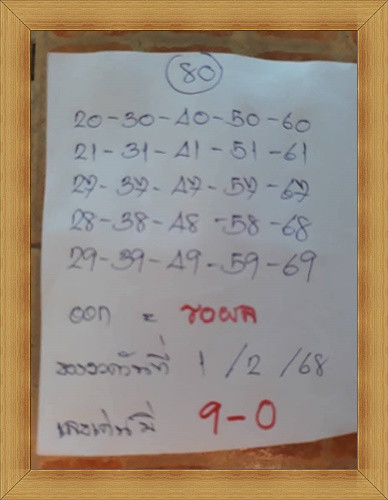 80
20-30-40-50-60
21-31-41-51-61
27-37-47-57-67
28-38-48-58-68
29-39-49-59-69
ออก = รอผล
งวดวันที่ 1/2/68
เลขเด่นมี 9-0